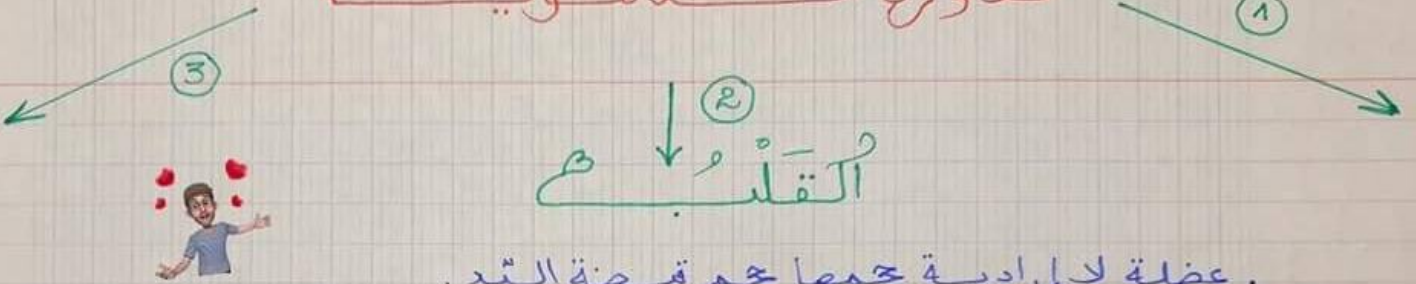 ① ② ③
اَلْقَلْبُ
. عضلة لا إرادية حجمها حجم قبضة اليد.